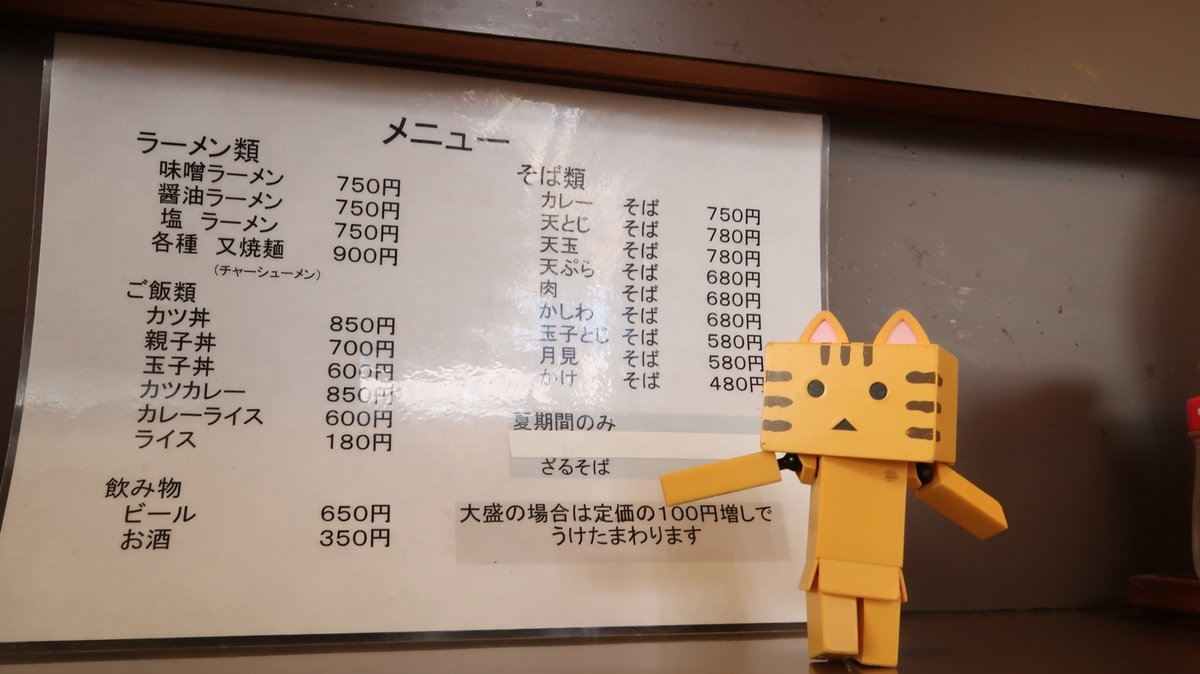 メニュー
ラーメン類
味噌ラーメン 750円
醤油ラーメン 750円
塩 ラーメン 750円
各種 又焼麺 900円
(チャーシューメン)
ご飯類
カツ丼 850円
親子丼 700円
玉子丼 600円
カツカレー 850円
カレーライス 600円
ライス 180円
飲み物
ビール 650円
お酒 350円
そば類
カレー そば 750円
天とじ そば 780円
天玉 そば 780円
天ぷら そば 680円
肉 そば 680円
かしわ そば 680円
玉子とじ そば 580円
月見 そば 580円
かけ そば 480円
夏期間のみ
ざるそば
大盛の場合は定価の100円増しで
うけたまわります